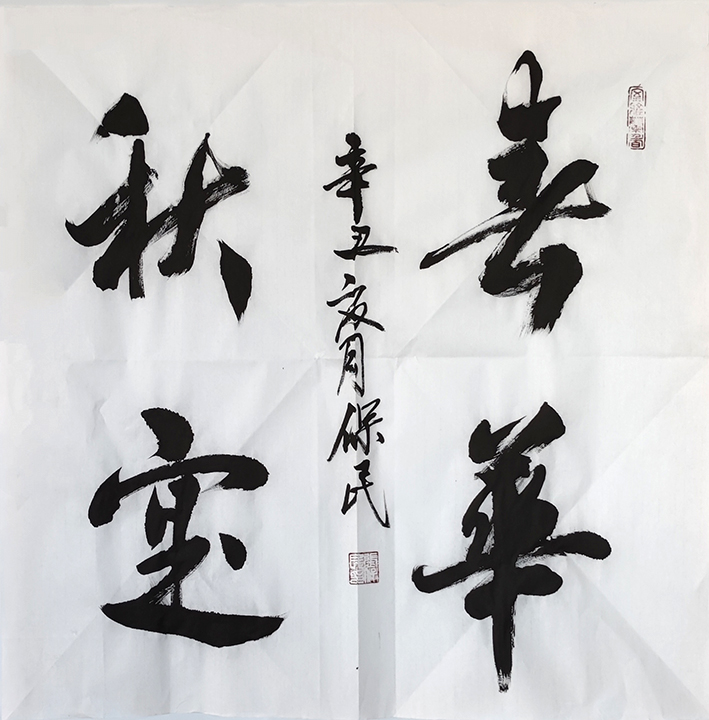 春華
秋寔
辛丑夏月保民